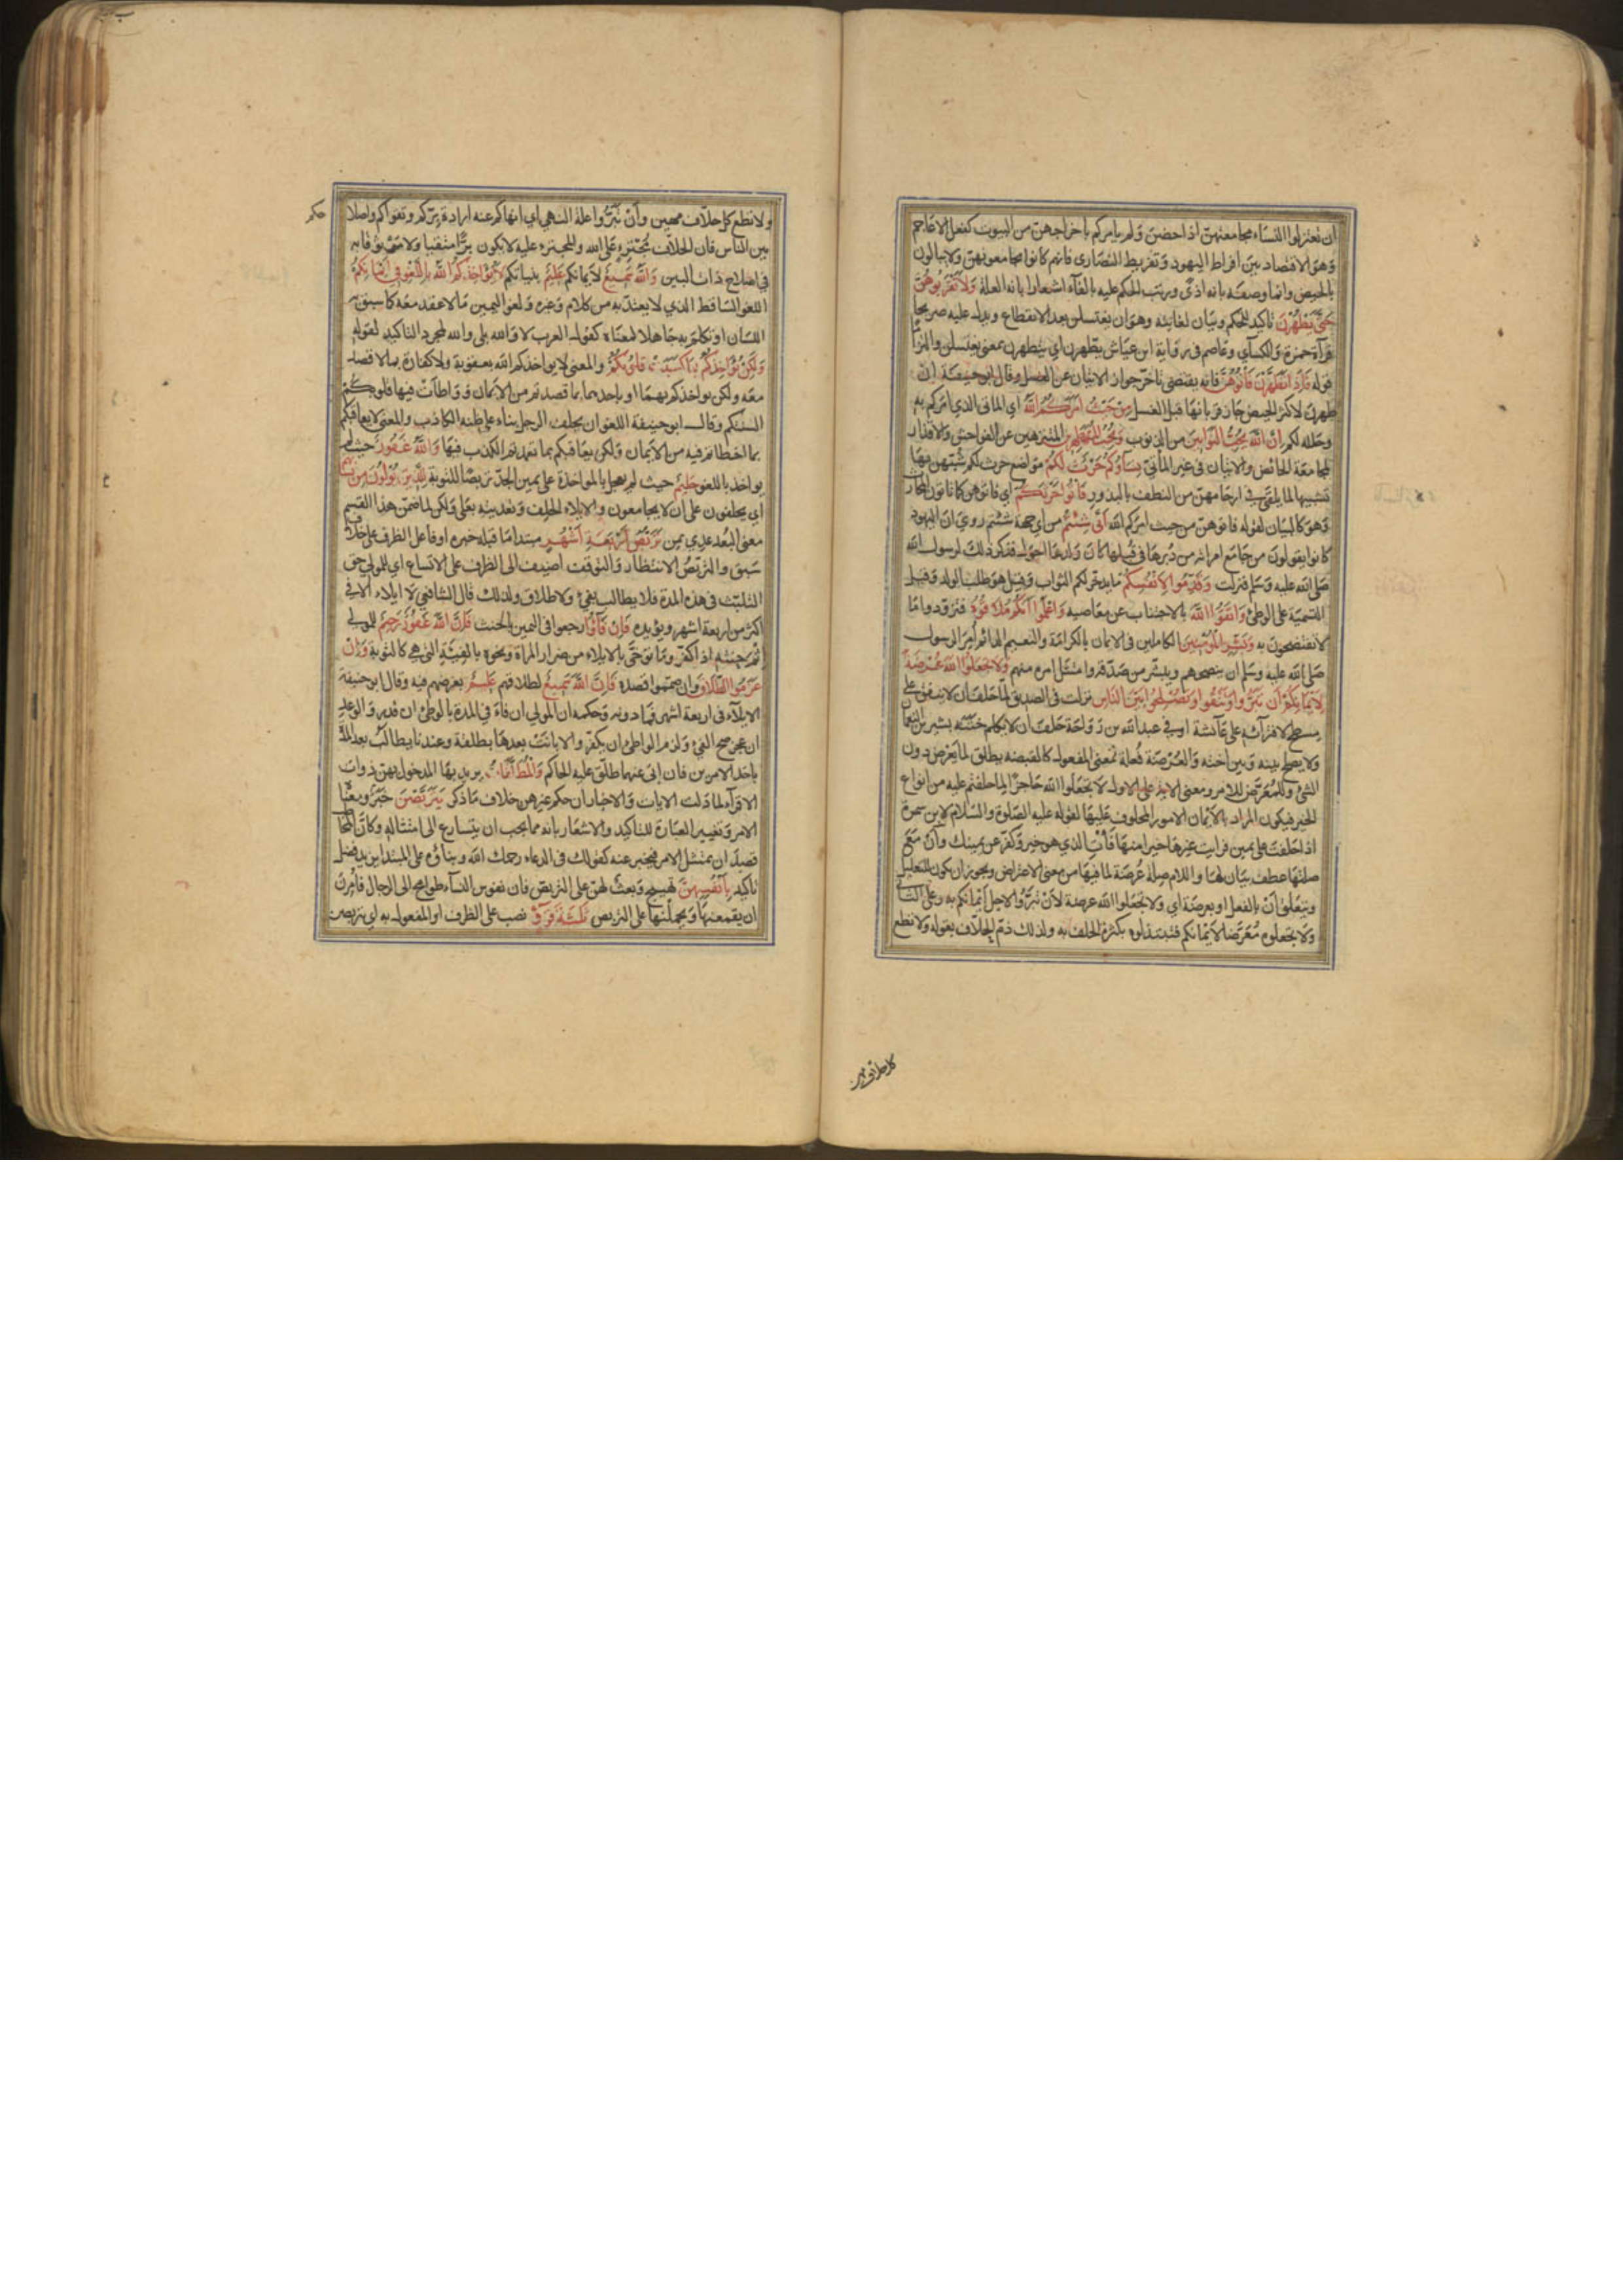 ان تعتزلوا النساء مجامعتهن اذا حضن ولم يامركم باخراجهن من البيوت كفعل الاعاجم
وهو الاقتصاد بين افراط اليهود وتفريط النصارى فانهم كانوا يجامعونهن ولا يبالون
بالحيض وانما وصفه بانه اذى ورتب الحكم عليه بالفاء اشعارا بانه العلة ولا تقربوهن
حتى يطهرن تاكيد للحكم وبيان لغايته وهو ان يغتسلن بعد الانقطاع ويدل عليه صريحا
قراءة حمزة والكسائي وعاصم في رواية ابن عياش يطهرن اي يتطهرن بمعنى يغتسلن والتزاما
قوله فاذا تطهرن فأتوهن فانه يقتضى تاخر جواز الاتيان عن الغسل وقال ابو حنيفة ان
طهرت لاكثر الحيض جاز قربانها قبل الغسل من حيث امركم الله اي الماتى الذي امركم به
وحلله لكم ان الله يحب التوابين من الذنوب ويحب المتطهرين المتنزهين عن الفواحش والاقذار
كمجامعة الحائض والاتيان في غير المأتي نساؤكم حرث لكم مواضع حرث لكم شبههن بها
تشبيها لما يلقى في ارحامهن من النطف بالبذور فأتوا حرثكم اي فاتوهن كما تاتون المحارث
وهو كالبيان لقوله فاتوهن من حيث امركم الله أنى شئتم من اي جهة شئتم روي ان اليهود
كانوا يقولون من جامع امراته من دبرها في قبلها كان ولدها احول فذكر ذلك لرسول الله
صلى الله عليه وسلم فنزلت وقدموا لانفسكم ما يدخر لكم الثواب وقيل هو طلب الولد وقيل
التسمية على الوطئ واتقوا الله بالاجتناب عن معاصيه واعلموا انكم ملاقوه فتزودوا ما
لا تفتضحون به وبشر المؤمنين الكاملين في الايمان بالكرامة والنعيم الدائم امر الرسول
صلى الله عليه وسلم ان ينصحهم ويبشر من صدقه وامتثل امره منهم ولا تجعلوا الله عرضة
لايمانكم أن تبروا وتتقوا وتصلحوا بين الناس نزلت في الصديق لما حلف ان لا ينفق على
مسطح لافترائه على عائشة او في عبد الله بن رواحة حلف ان لا يكلم ختنه بشير بن النعمان
ولا يصلح بينه وبين اخته والعرضة فعلة بمعنى المفعول كالقبضة يطلق لما يعرض دون
الشئ وللمعرض للامر ومعنى الاية على الاول لا تجعلوا الله حاجزا لما حلفتم عليه من انواع
الخير فيكون المراد بالايمان الامور المحلوف عليها لقوله عليه الصلوة والسلام لابن سمرة
اذا حلفت على يمين فرايت غيرها خيرا منها فأت الذي هو خير وكفر عن يمينك وأن مع
صلتها عطف بيان لها واللام صلة عرضة لما فيها من معنى الاعتراض ويجوز ان يكون للتعليل
ويتعلق أن بالفعل او بعرضة اي ولا تجعلوا الله عرضة لأن تبروا لاجل أيمانكم به وعلى الثاني
ولا تجعلوه معرضا لأيمانكم فتبتذلوه بكثرة الحلف به ولذلك ذم الحلاف بقوله ولا تطع
ولا تطع كل حلاف مهين وأن تبروا علة النهي اي انهاكم عنه ارادة بركم وتقواكم واصلاحكم
بين الناس فان الحلاف مجترئ على الله والمجترء عليه لا يكون برا متقيا ولا موثوقا به
في اصلاح ذات البين والله سميع لأيمانكم عليم بنياتكم لا يؤاخذكم الله باللغو في ايمانكم
اللغو الساقط الذي لا يعتد به من كلام وغيره ولغو اليمين ما لا عقد معه كما سبق به
اللسان او تكلم به جاهلا لمعناه كقول العرب لا والله بلى والله لمجرد التاكيد لقوله
ولكن يؤاخذكم بما كسبت قلوبكم والمعنى لا يواخذكم الله بعقوبة ولا كفارة بما لا قصد
معه ولكن يواخذكم بهما او باحدهما بما قصدتم من الايمان وواطأت فيها قلوبكم
السنتكم وقال ابو حنيفة اللغو ان يحلف الرجل بناء على ظنه الكاذب والمعنى لا يعاقبكم
بما اخطاتم فيه من الايمان ولكن يعاقبكم بما تعمدتم الكذب فيها والله غفور حيث لم
يواخذ باللغو حليم حيث لم يعجل بالمواخذة على يمين الجد تربصا للتوبة للذين يؤلون من نسائهم
اي يحلفون على ان لا يجامعوهن والايلاء الحلف وتعديته بعلى ولكن لما ضمن هذا القسم
معنى البعد عدي بمن تربص أربعة أشهر مبتدا ما قبله خبره او فاعل الظرف على خلاف
سبق والتربص الانتظار والتوقف اضيف الى الظرف على الاتساع اي للمولي حق
التلبث في هذه المدة فلا يطالب بفئ ولا طلاق ولذلك قال الشافعي لا ايلاء الا في
اكثر من اربعة اشهر ويؤيده فإن فاؤا رجعوا في اليمين بالحنث فإن الله غفور رحيم للمولي
اثم حنثه اذا كفر وما توخى بالايلاء من ضرار المراة ونحوه بالفيئة التي هي كالتوبة وإن
عزموا الطلاق وان صمموا قصده فإن الله سميع لطلاقهم عليم بغرضهم فيه وقال ابو حنيفة
الايلاء في اربعة اشهر فما دونه وحكمه ان المولي ان فاء في المدة بالوطئ ان قدر والوعد
ان عجز صح الفئ ولزم الواطئ ان يكفر والا بانت بعدها بطلقة وعندنا يطالب بعد المدة
باحد الامرين فان ابى عنهما طلق عليه الحاكم والمطلقات يريد بها المدخول بهن ذوات
الاقراء لما دلت الايات والاخبار ان حكم غيرهن خلاف ما ذكر يتربصن خبر بمعنى
الامر وتغيير العبارة للتاكيد والاشعار بانه مما يجب ان يتسارع الى امتثاله وكأن المخاطب
قصد ان يمتثل الامر فيخبر عنه كقولك في الدعاء رحمك الله وبناؤه على المبتدا يزيد فضل
تاكيد بأنفسهن تهييج وبعث لهن على التربص فان نفوس النساء طوامح الى الرجال فأمرن
ان يقمعنها ويحملنها على التربص ثلاثة قروء نصب على الظرف او المفعول به اي يتربصن